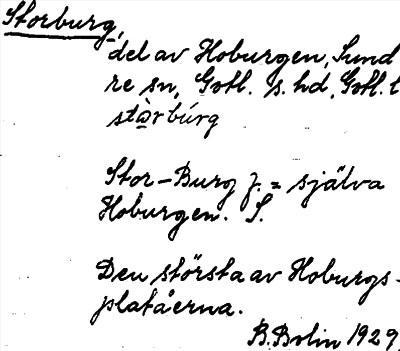 Storburg,
del av Hoburgen, Sund
re sn, Gotl. s. hd, Gotl. l
stàrbúrg
Stor-Burg f. = själva
Hoburgen. S.
Den största av Hoburgs-
platåerna.
B. Bolin 1929.